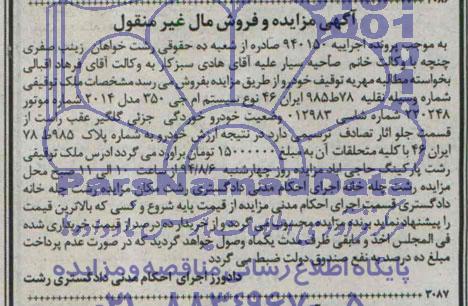 آگهی مزایده و فروش مال غیر منقول
به موجب پرونده اجراییه ۹۴۰۱۵۰ صادره از شعبه ده حقوقی رشت خواهان زینب صفری
چنچه با وکالت خانم صاحبه سیار علیه آقای هادی سبزکار به وکالت آقای فرهاد اقبالی
بخواسته مطالبه مهریه توقیف خودرو از طریق مزایده بفروش می رسد مشخصات ملک توقیفی
شماره وسیله نقلیه ۷۸ط۹۸۵ ایران ۴۶ نوع سیستم ام جی ۳۵۰ مدل ۲۰۱۴ شماره موتور
۲۲۰۲۴۸ شماره شاسی ۰۱۲۹۸۳ وضعیت خودرو خوردگی جزئی گلگیر عقب راست از
قسمت جلو آثار تصادف و ترمیمی دارد در نتیجه ارزش خودرو به شماره پلاک ۹۸۵ط ۷۸
ایران ۴۶ با کلیه متعلقات آن به مبلغ ۱۵۰۰۰۰۰۰ تومان برآورد می گردد ادرس ملک توقیفی
رشت پارکینگ حاجی اباد مزایده روز چهارشنبه ۹۴/۸/۶ از ساعت ۱۰ الی ۱۱ صبح محل
مزایده رشت چله خانه اجرای احکام مدنی دادگستری رشت مکان مزایده رشت چله خانه
دادگستری قسمت اجرای احکام مدنی مزایده از قیمت پایه شروع و کسی که بالاترین قیمت
را پیشنهاد نماید برنده مزایده محسوب می گردد و از خریدار ده درصد از قیمت خریداری شده
فی المجلس اخذ و مابقی ظرف مدت یکماه وصول خواهد گردید که در صورت عدم پرداخت
مبلغ ده درصد به نفع صندوق دولت ضبط می گردد
دادورز اجرای احکام مدنی دادگستری رشت
۳۰۸۷
پایگاه اطلاع رسانی مناقصه و مزایده